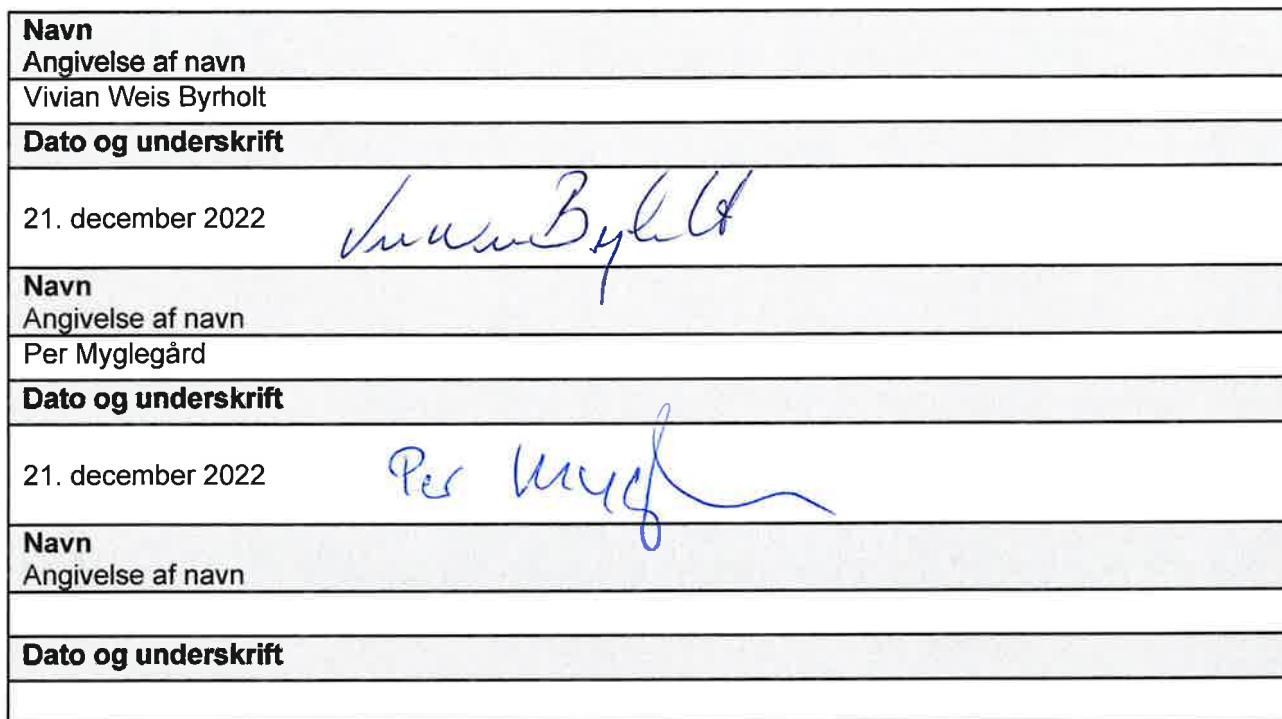 Navn
Angivelse af navn
Vivian Weis Byrholt
Dato og underskrift
21. december 2022 Vivian Byrholt
Navn
Angivelse af navn
Per Myglegård
Dato og underskrift
21. december 2022 Per
Navn
Angivelse af navn
Dato og underskrift